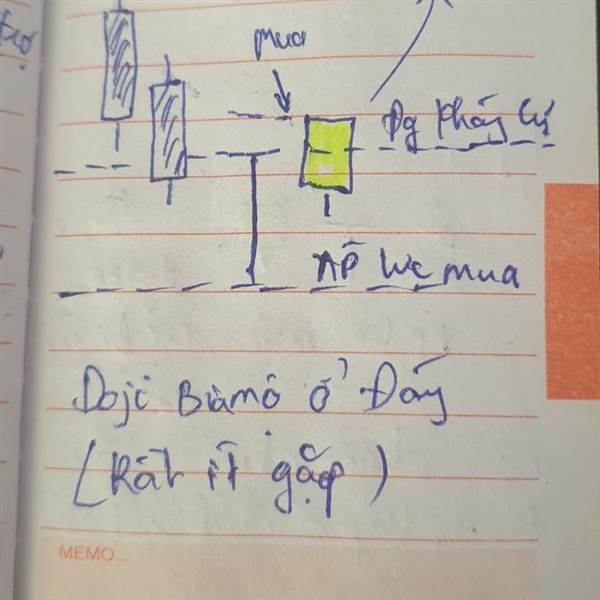 trợ
mua
Đg kháng cự
ÁP lực mua
Doji Biamộ ở Đáy
(Rất ít gặp)
MEMO...